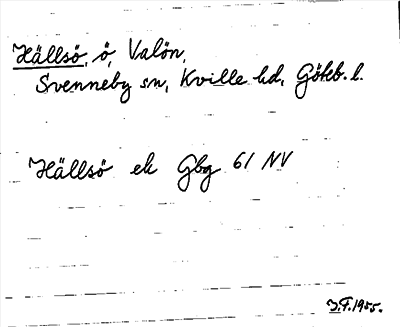 Hällsö, ö, Valön,
Svenneby sn, Kville hd, Göteb. l.
Hällsö ek Gbg 61 NV
J.F. 1955.